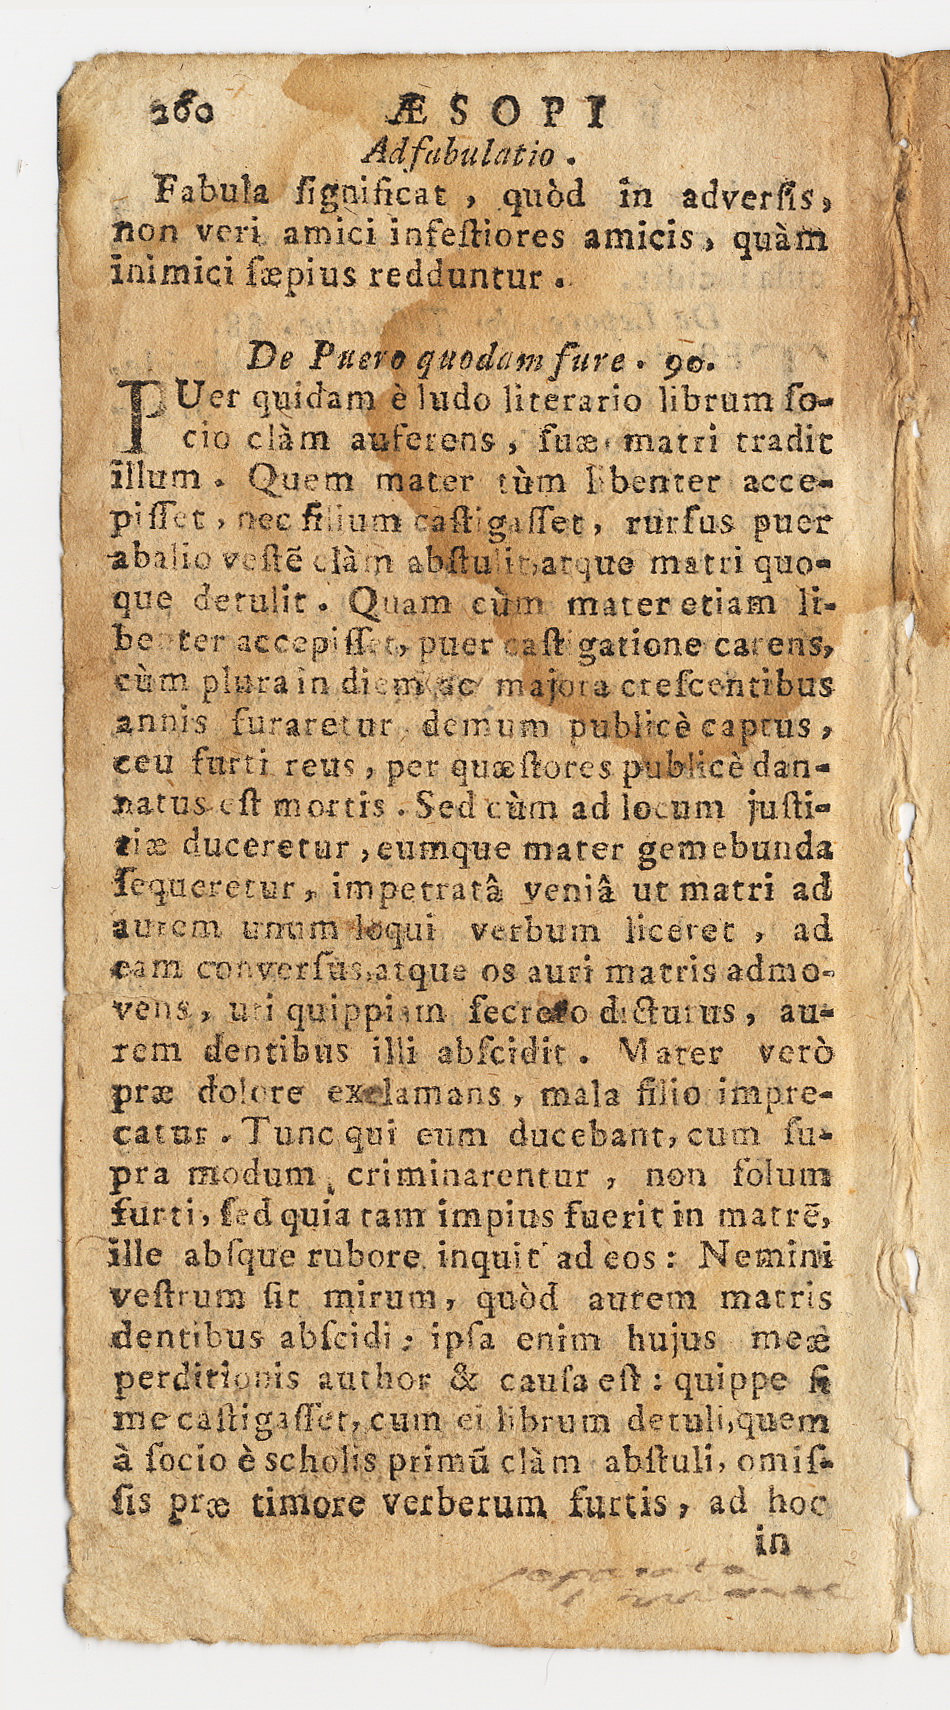 260 ÆSOPI
Adfabulatio.
Fabula ſignificat, quòd in adverſis,
non veri amici infeſtiores amicis, quàm
inimici ſæpius redduntur.
De Puero quodam fure. 90.
PUer quidam è ludo literario librum ſo-
cio clàm auferens, ſuæ matri tradit
illum. Quem mater tùm libenter acce-
piſſet, nec filium caſtigaſſet, rurſus puer
ab alio veſtē clàm abſtulit, atque matri quo-
que detulit. Quam cùm mater etiam li-
benter accepiſſet, puer caſtigatione carens,
cùm plura in diem ac majora creſcentibus
annis furaretur, demum publicè captus,
ceu furti reus, per quæſtores publicè dan-
natus eſt mortis. Sed cùm ad locum juſti-
tiæ duceretur, eumque mater gemebunda
ſequeretur, impetratâ veniâ ut matri ad
aurem unum loqui verbum liceret, ad
eam converſus, atque os auri matris admo-
vens, uti quippiam ſecreto dicturus, au-
rem dentibus illi abſcidit. Mater verò
præ dolore exclamans, mala filio impre-
catur. Tunc qui eum ducebant, cum ſu-
pra modum criminarentur, non ſolum
furti, ſed quia tam impius fuerit in matrē,
ille abſque rubore inquit ad eos: Nemini
veſtrum ſit mirum, quòd aurem matris
dentibus abſcidi: ipſa enim hujus meæ
perditionis author & cauſa eſt: quippe ſi
me caſtigaſſet, cum ei librum detuli, quem
à ſocio è scholis primū clàm abſtuli, omiſ-
ſis præ timore verberum furtis, ad hoc
in